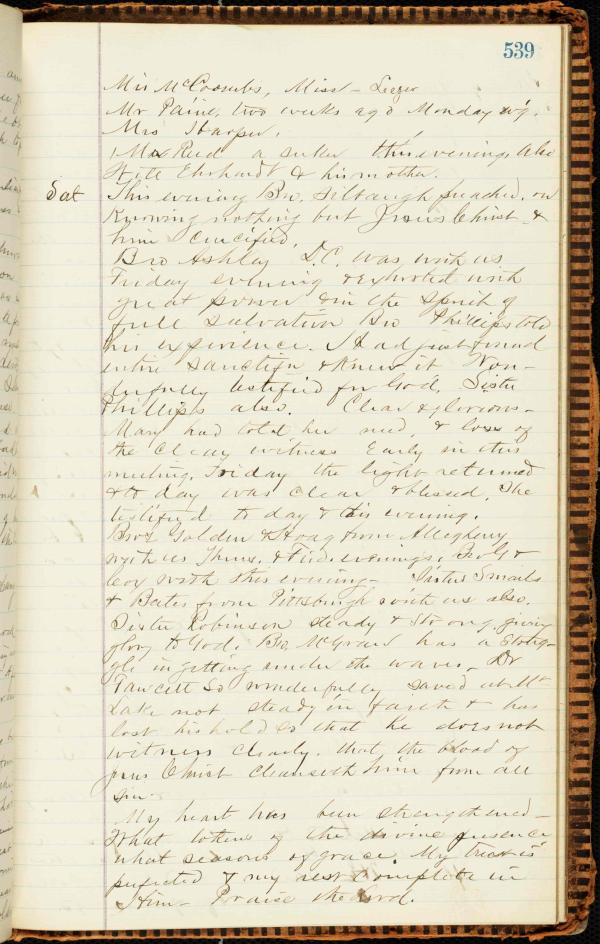 539
Mis McCoombs, Misst - Leezer
Mr Paine, two weeks ago Monday evg.
Mrs Harper,
Mrs Reed a seker this evening, also
Will Ehrhardt & his mother.
Sat This evening Bro. Silbaugh preached, on
Knowing nothing but Jesus Christ &
him crucified.
Bro Ashley D.C. was with us
Friday evening & exhorted with
great power & in the spirit of
full salvation Bro Phillips told
his experience. Had just found
entire sanctifn & knew it Won-
derfully testified for God. Sister
Phillips also. Clear & glorious -
Mary had told her need, & loss of
the clear witness Early in this
meeting. Friday the light returned
& to day was clear & blessed. She
testified to day & this evening.
Bros Golden & Hoag from Allegheny
with us Thurs. & Frid. evenings. Bro G &
boy with this evening - Sisters Smails
& Bates from Pittsburgh with us also.
Sister Robinson steady & strong, giving
glory to God. Bro. McGraw has a strug-
gle in getting under the waves - Dr
Fawcett so wonderfully saved at Mt
Lake not steady in faith & has
lost his hold so that he does not
witness clearly. that the blood of
Jesus Christ cleanseth him from all
sin -
My heart has been strengthened -
What tokens of the divine presence
what seasons of grace. My trust is
perfected & my rest complete in
Him - Praise the Lord.